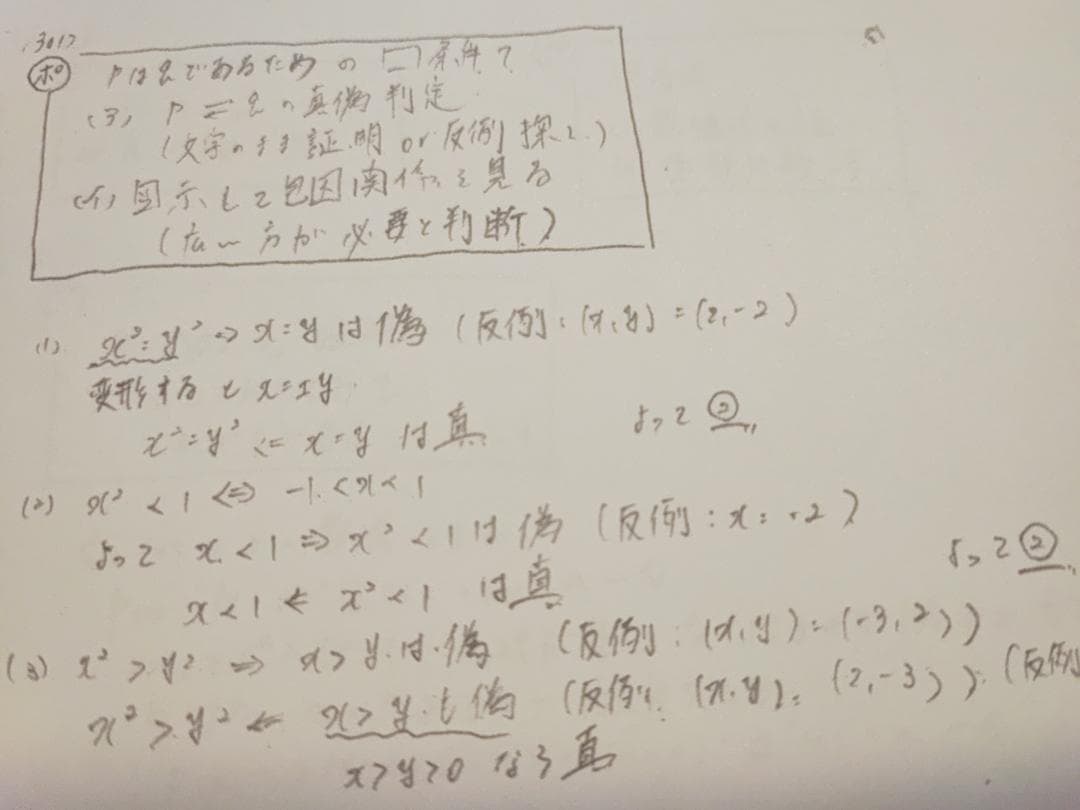 ポ
pはqであるための□条件?
(ア) p⇄qの真偽判定
(文字のまま証明 or 反例探し)
(イ) 図示して包含関係を見る
(広い方が必要と判断)
(1) x²=y² ⇒ x=y は偽 (反例:(x,y)=(2,-2)
変形すると x=±y.
x²=y² ⇐ x=y は真
よって②
(2) x²<1 ⇔ -1<x<1
よって x<1 ⇒ x²<1 は偽 (反例:x=-2)
x<1 ⇐ x²<1 は真
よって②
(3) x²>y² ⇒ x>y は偽 (反例:(x,y)=(-3,2))
x²>y² ⇐ x>y も偽 (反例. (x,y)=(2,-3)). (反例
x>y>0 なら真